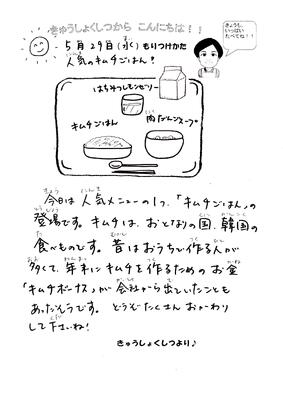 きゅうしょくしつから こんにちは！！
きょうも、
いっぱい
たべてね！！
5月29日(水)もりつけかた
人気のキムチごはん！
はちみつレモンゼリー
キムチごはん
肉だんごスープ
今日は人気メニューの1つ、「キムチごはん」の
登場です。キムチは、おとなりの国、韓国の
食べものです。昔はおうちで作る人が
多くて、年末にキムチを作るためのお金
「キムチボーナス」が会社から出ていたことも
あったそうです。どうぞたくさんおかわり
して下さいね！
きゅうしょくしつより♪